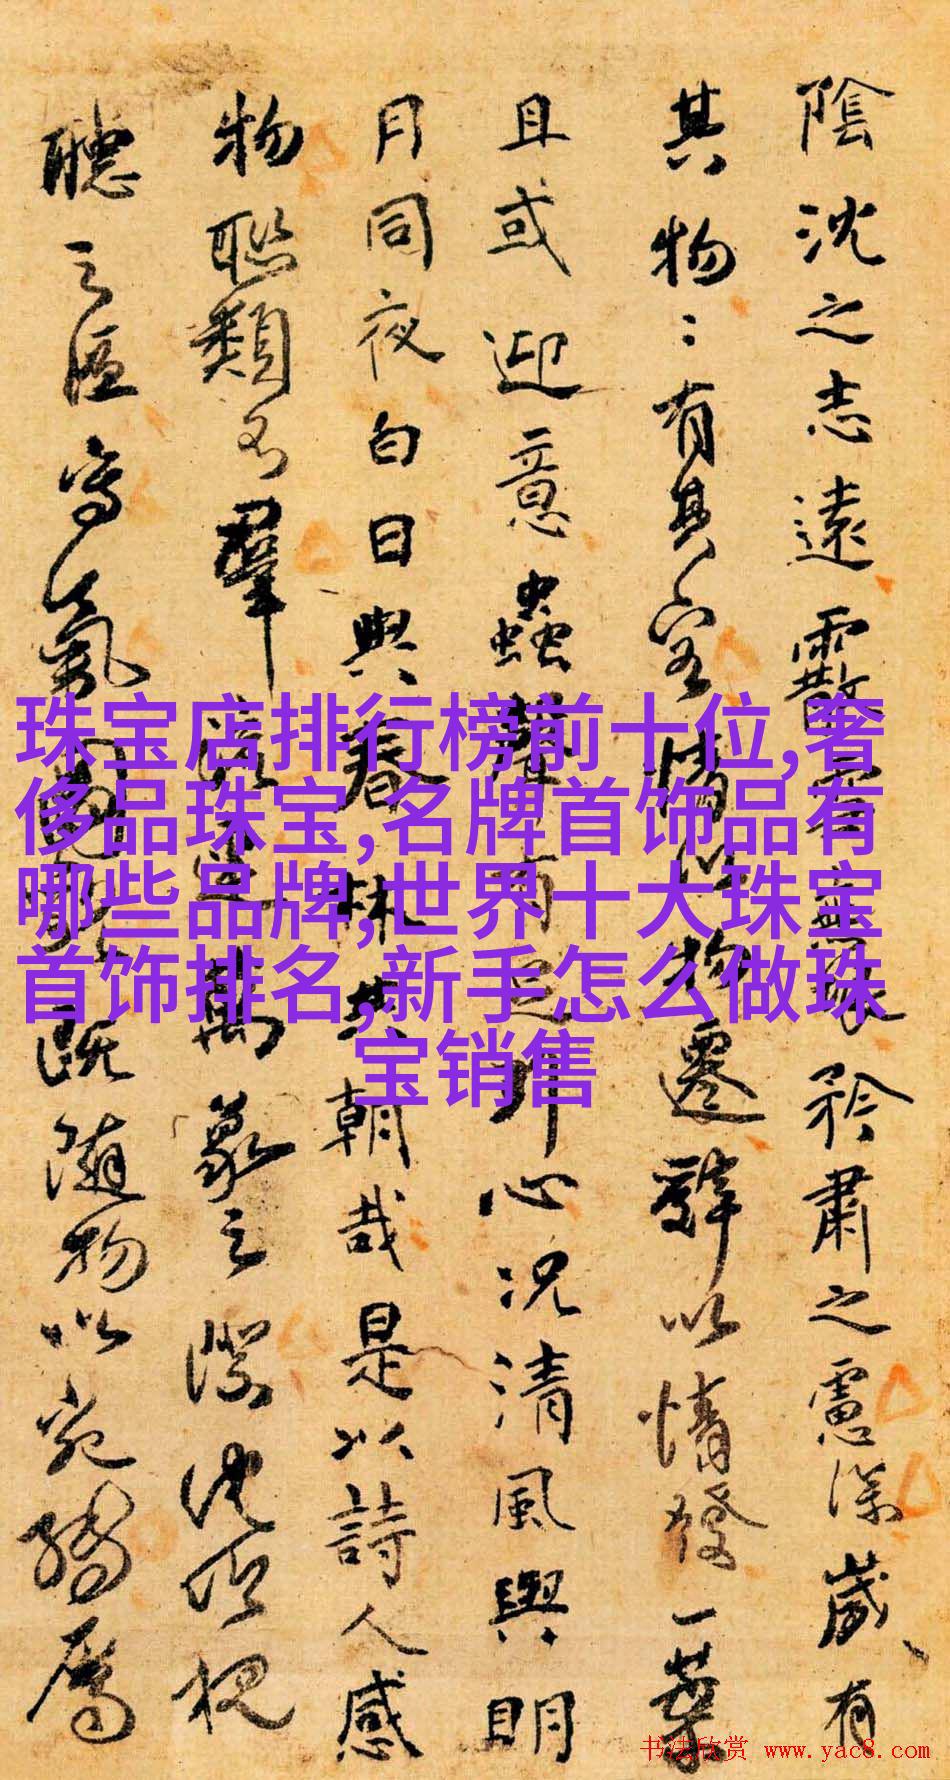 陰沈之志遠霰雪無垠矜肅之慮深歲有
其物〻有其容情以物遷辭以情發一葉
且或迎意蟲聲有足引心況清風與明
月同夜白日與春林共朝哉是以詩人感
物聯類不流連萬象之際沈吟視
聽之區寫氣圖貌既隨物以宛轉屬
珠宝店排行榜前十位,奢
侈品珠宝,名牌首饰品有
哪些品牌,世界十大珠宝
首饰排名,新手怎么做珠
宝销售
书法欣赏 www.yac8.com